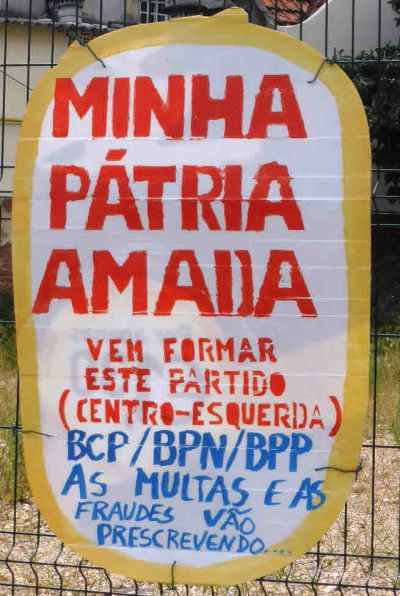 MINHA
PÁTRIA
AMADA
VEM FORMAR
ESTE PARTIDO
(CENTRO-ESQUERDA)
BCP/BPN/BPP
AS MULTAS E AS
FRAUDES VÃO
PRESCREVENDO....